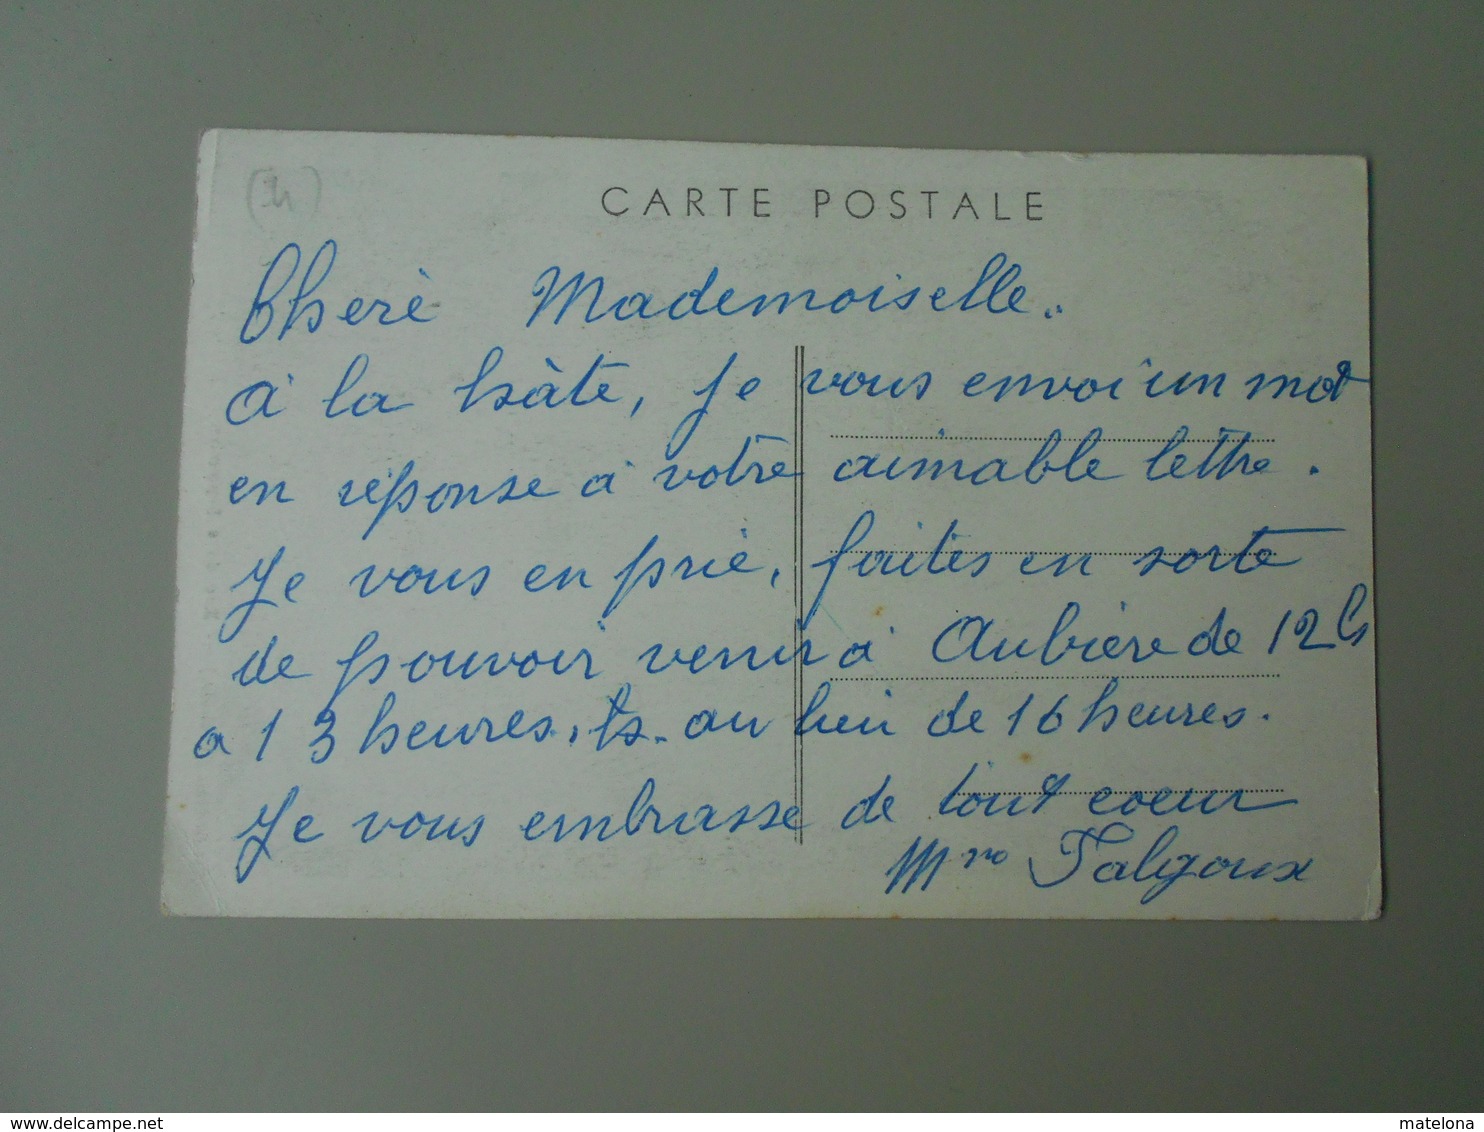 CARTE POSTALE
Cherè Mademoiselle.
à la hâte, je vous envoi un mot
en réponse à votre aimable lettre.
Je vous en prie, faites en sorte
de pouvoir venir à Aubière de 12h
a 13 heures, au lieu de 16 heures.
Je vous embrasse de tout coeur
Mme Falgoux
delcampe.net
matelona